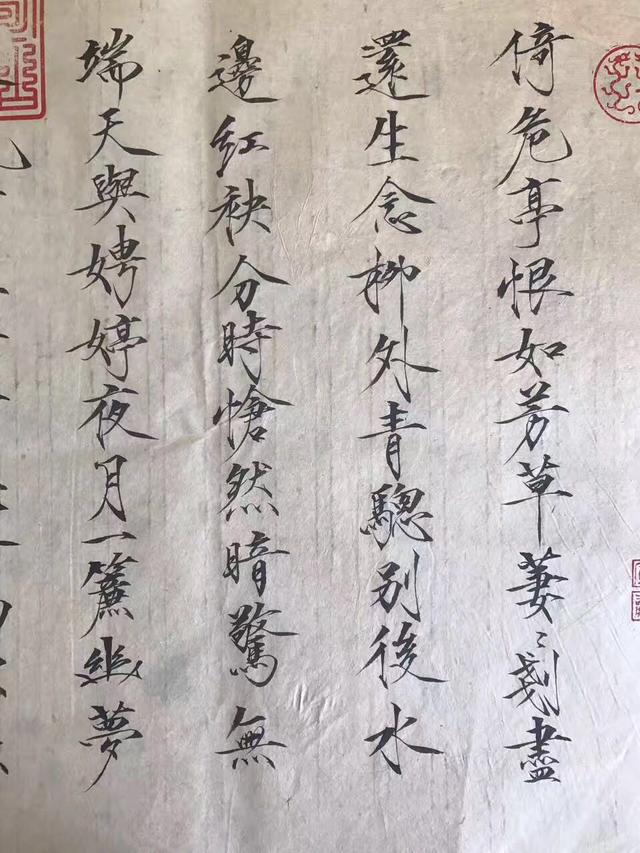 倚危亭恨如芳草萋〻剗盡
還生念柳外青驄別後水
邊紅袂分時愴然暗驚無
端天與娉婷夜月一簾幽夢